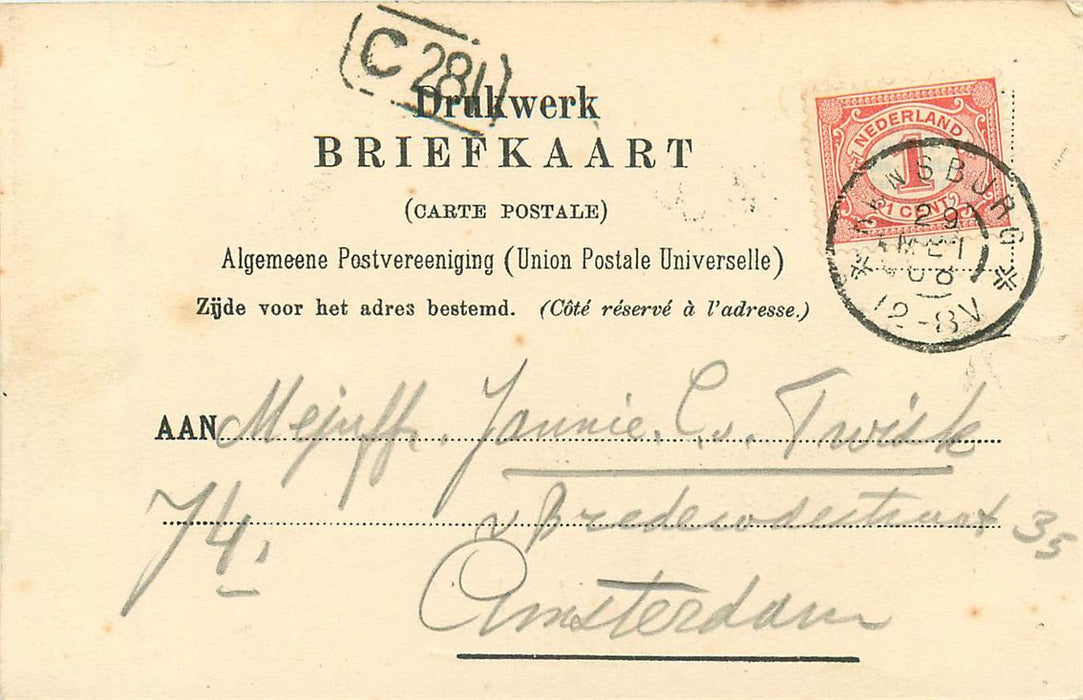 C 281
Drukwerk
BRIEFKAART
(CARTE POSTALE)
Algemeene Postvereeniging (Union Postale Universelle)
Zijde voor het adres bestemd. (Côté réservé à l'adresse.)
NEDERLAND
1
1 CENT
RENSBURG
29
MEI
08
12-8V
AAN Mejuff. Jannie. C. v. Twisk
74.
v Brederodestraat 35
Amsterdam